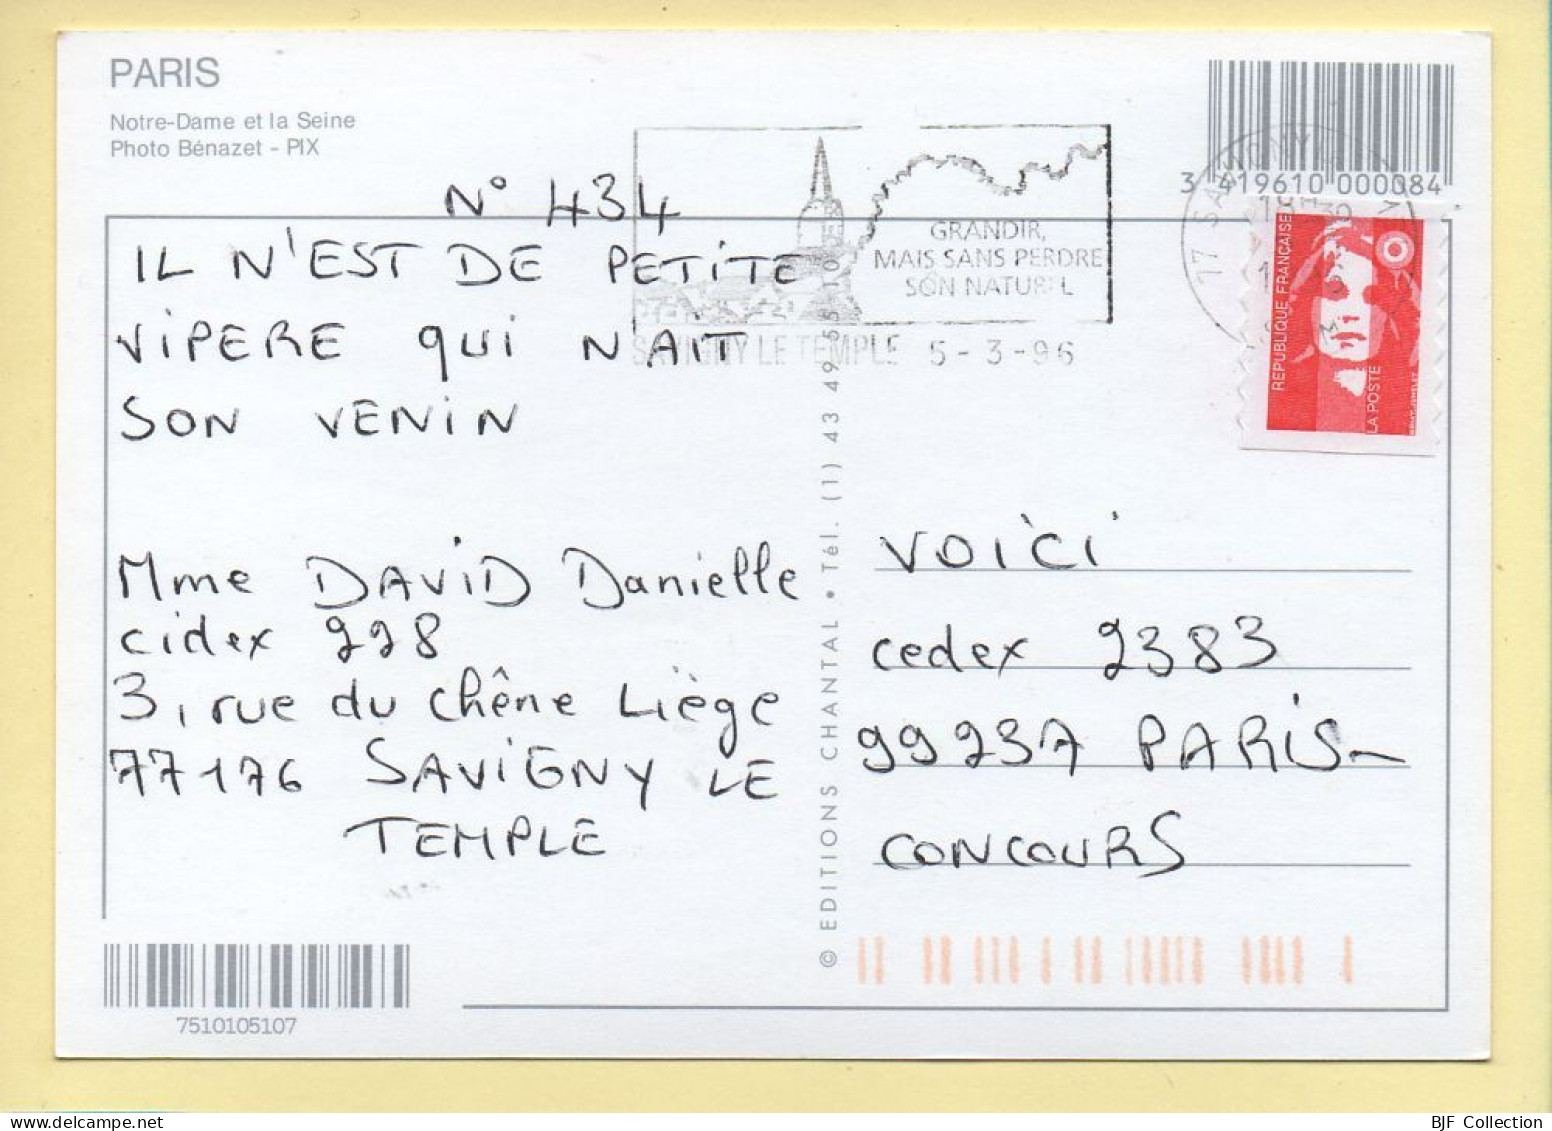 PARIS
Notre-Dame et la Seine
Photo Bénazet - PIX
3 419610 000084
N° 434
IL N'EST DE PETITE
VIPERE QUI N'AIT
SON VENIN
GRANDIR,
MAIS SANS PERDRE
SON NATUREL
SAVIGNY LE TEMPLE 5-3-96
RÉPUBLIQUE FRANÇAISE
LA POSTE
Mme DAVID Danielle
cidex 228
3, rue du chêne Liège
77176 SAVIGNY LE
TEMPLE
© EDITIONS CHANTAL • Tél. (1) 43 49 55 10
VOICI
cedex 2383
99237 PARIS-
CONCOURS
7510105107
BJF Collection